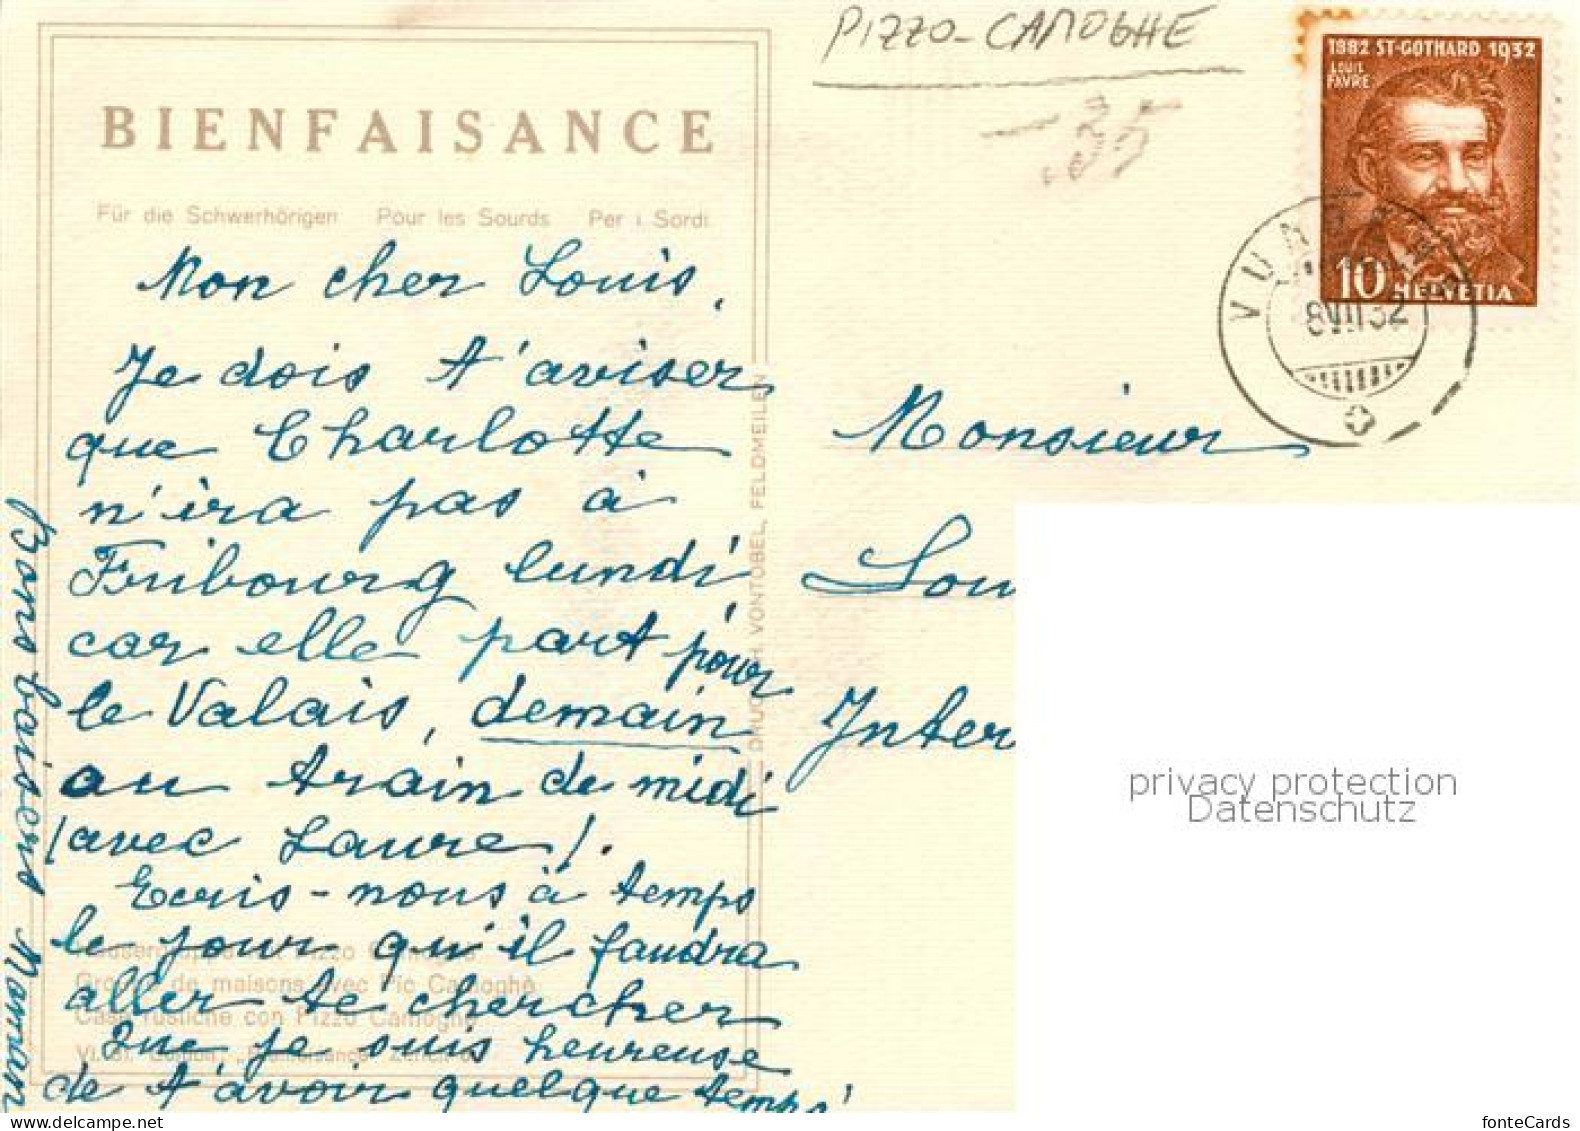 PIZZO-CAMOGHE
-.35
1882 ST-GOTHARD 1932
LOUIS
FAVRE
10 HELVETIA
8VII32
BIENFAISANCE
Für die Schwerhörigen Pour les Sourds Per i Sordi
Mon cher Louis,
Je dois t'aviser
que Charlotte
n'ira pas à
Fribourg lundi
car elle part pour
le Valais, demain
au train de midi
(avec Laure).
Ecris-nous à temps
le jour qu'il faudra
aller te chercher
Que je suis heureuse
de t'avoir quelque temps!
Bons baisers Maman
Monsieur
Lou
Inter
VONTOBEL, FELDMEILEN
Groupe de maisons avec Pic Camoghè
Case rustiche con Pizzo Camoghè
privacy protection
Datenschutz
fonteCards